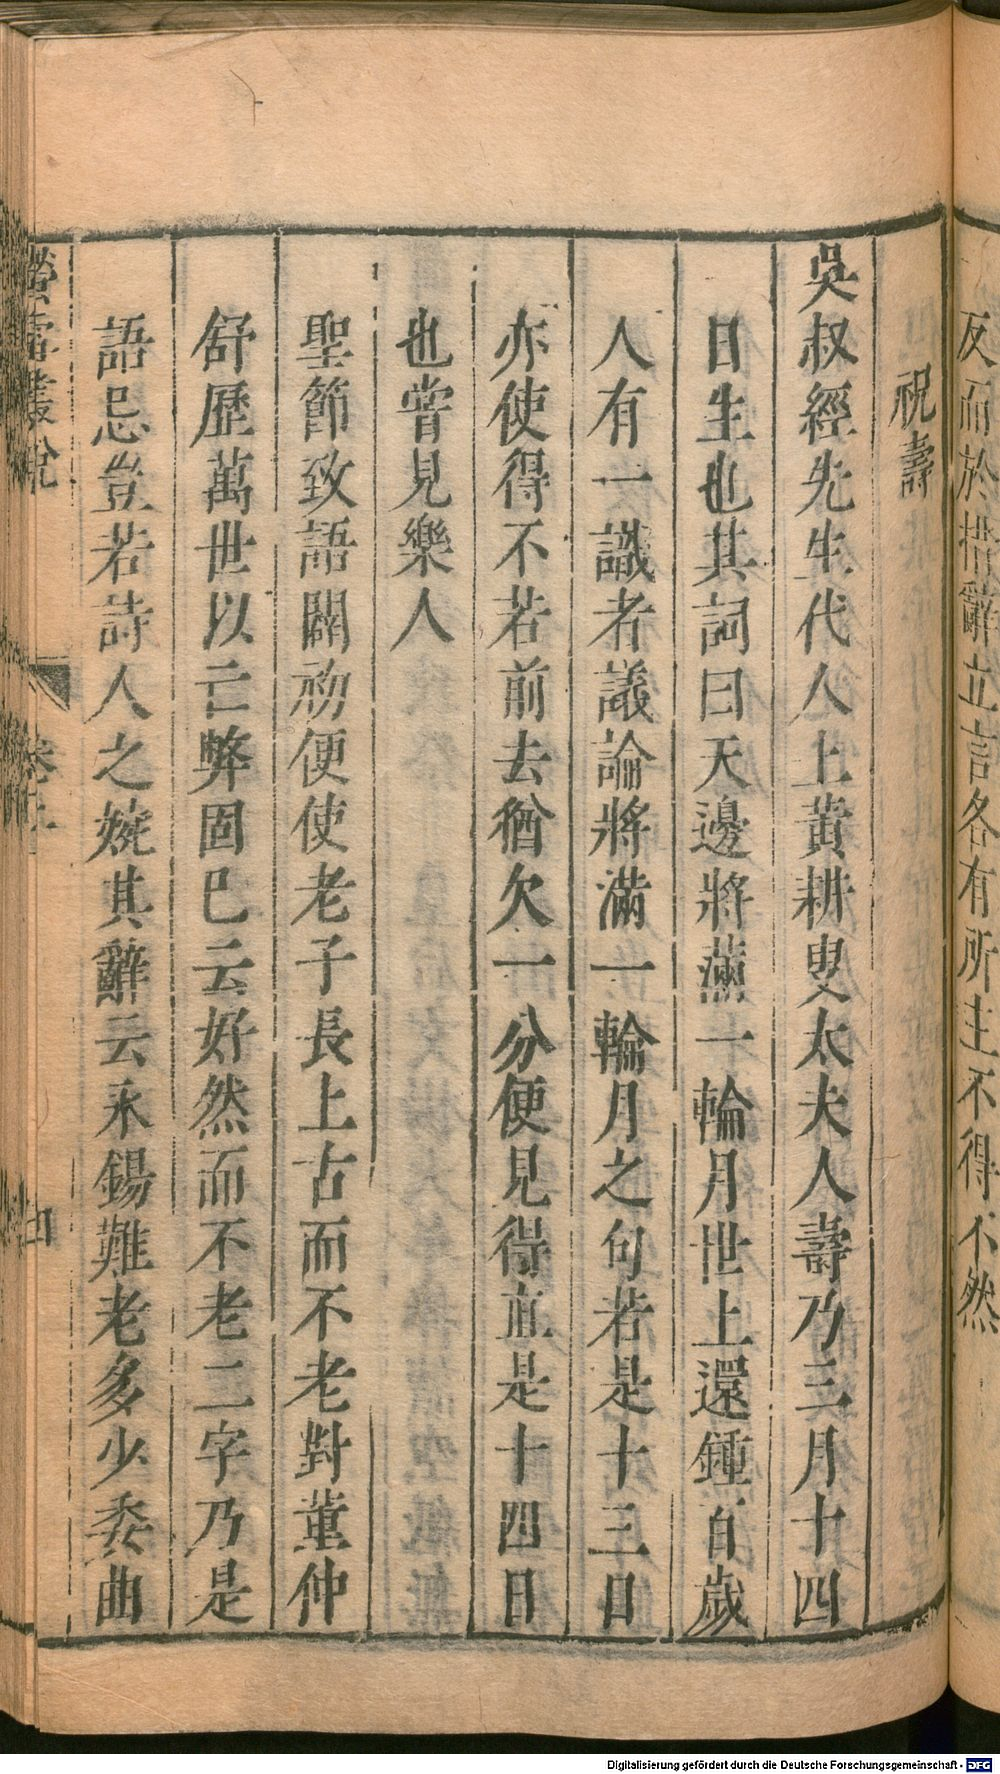 反而於措辭立言各有所主不得不然
祝壽
吳叔經先生代人上黃耕叟太夫人壽乃三月十四
日生也其詞曰天邊將滿一輪月世上還鍾百歲
人有一識者議論將滿一輪月之句若是十三日
亦使得不若前去猶欠一分便見得直是十四日
也嘗見樂人
聖節致語開初便使老子長上古而不老對董仲
舒歷萬世以亡弊固已云好然而不老二字乃是
語忌豈若詩人之婉其辭云永錫難老多少委曲
螢雪叢說
卷上
四
Digitalisierung gefördert durch die Deutsche Forschungsgemeinschaft - DFG